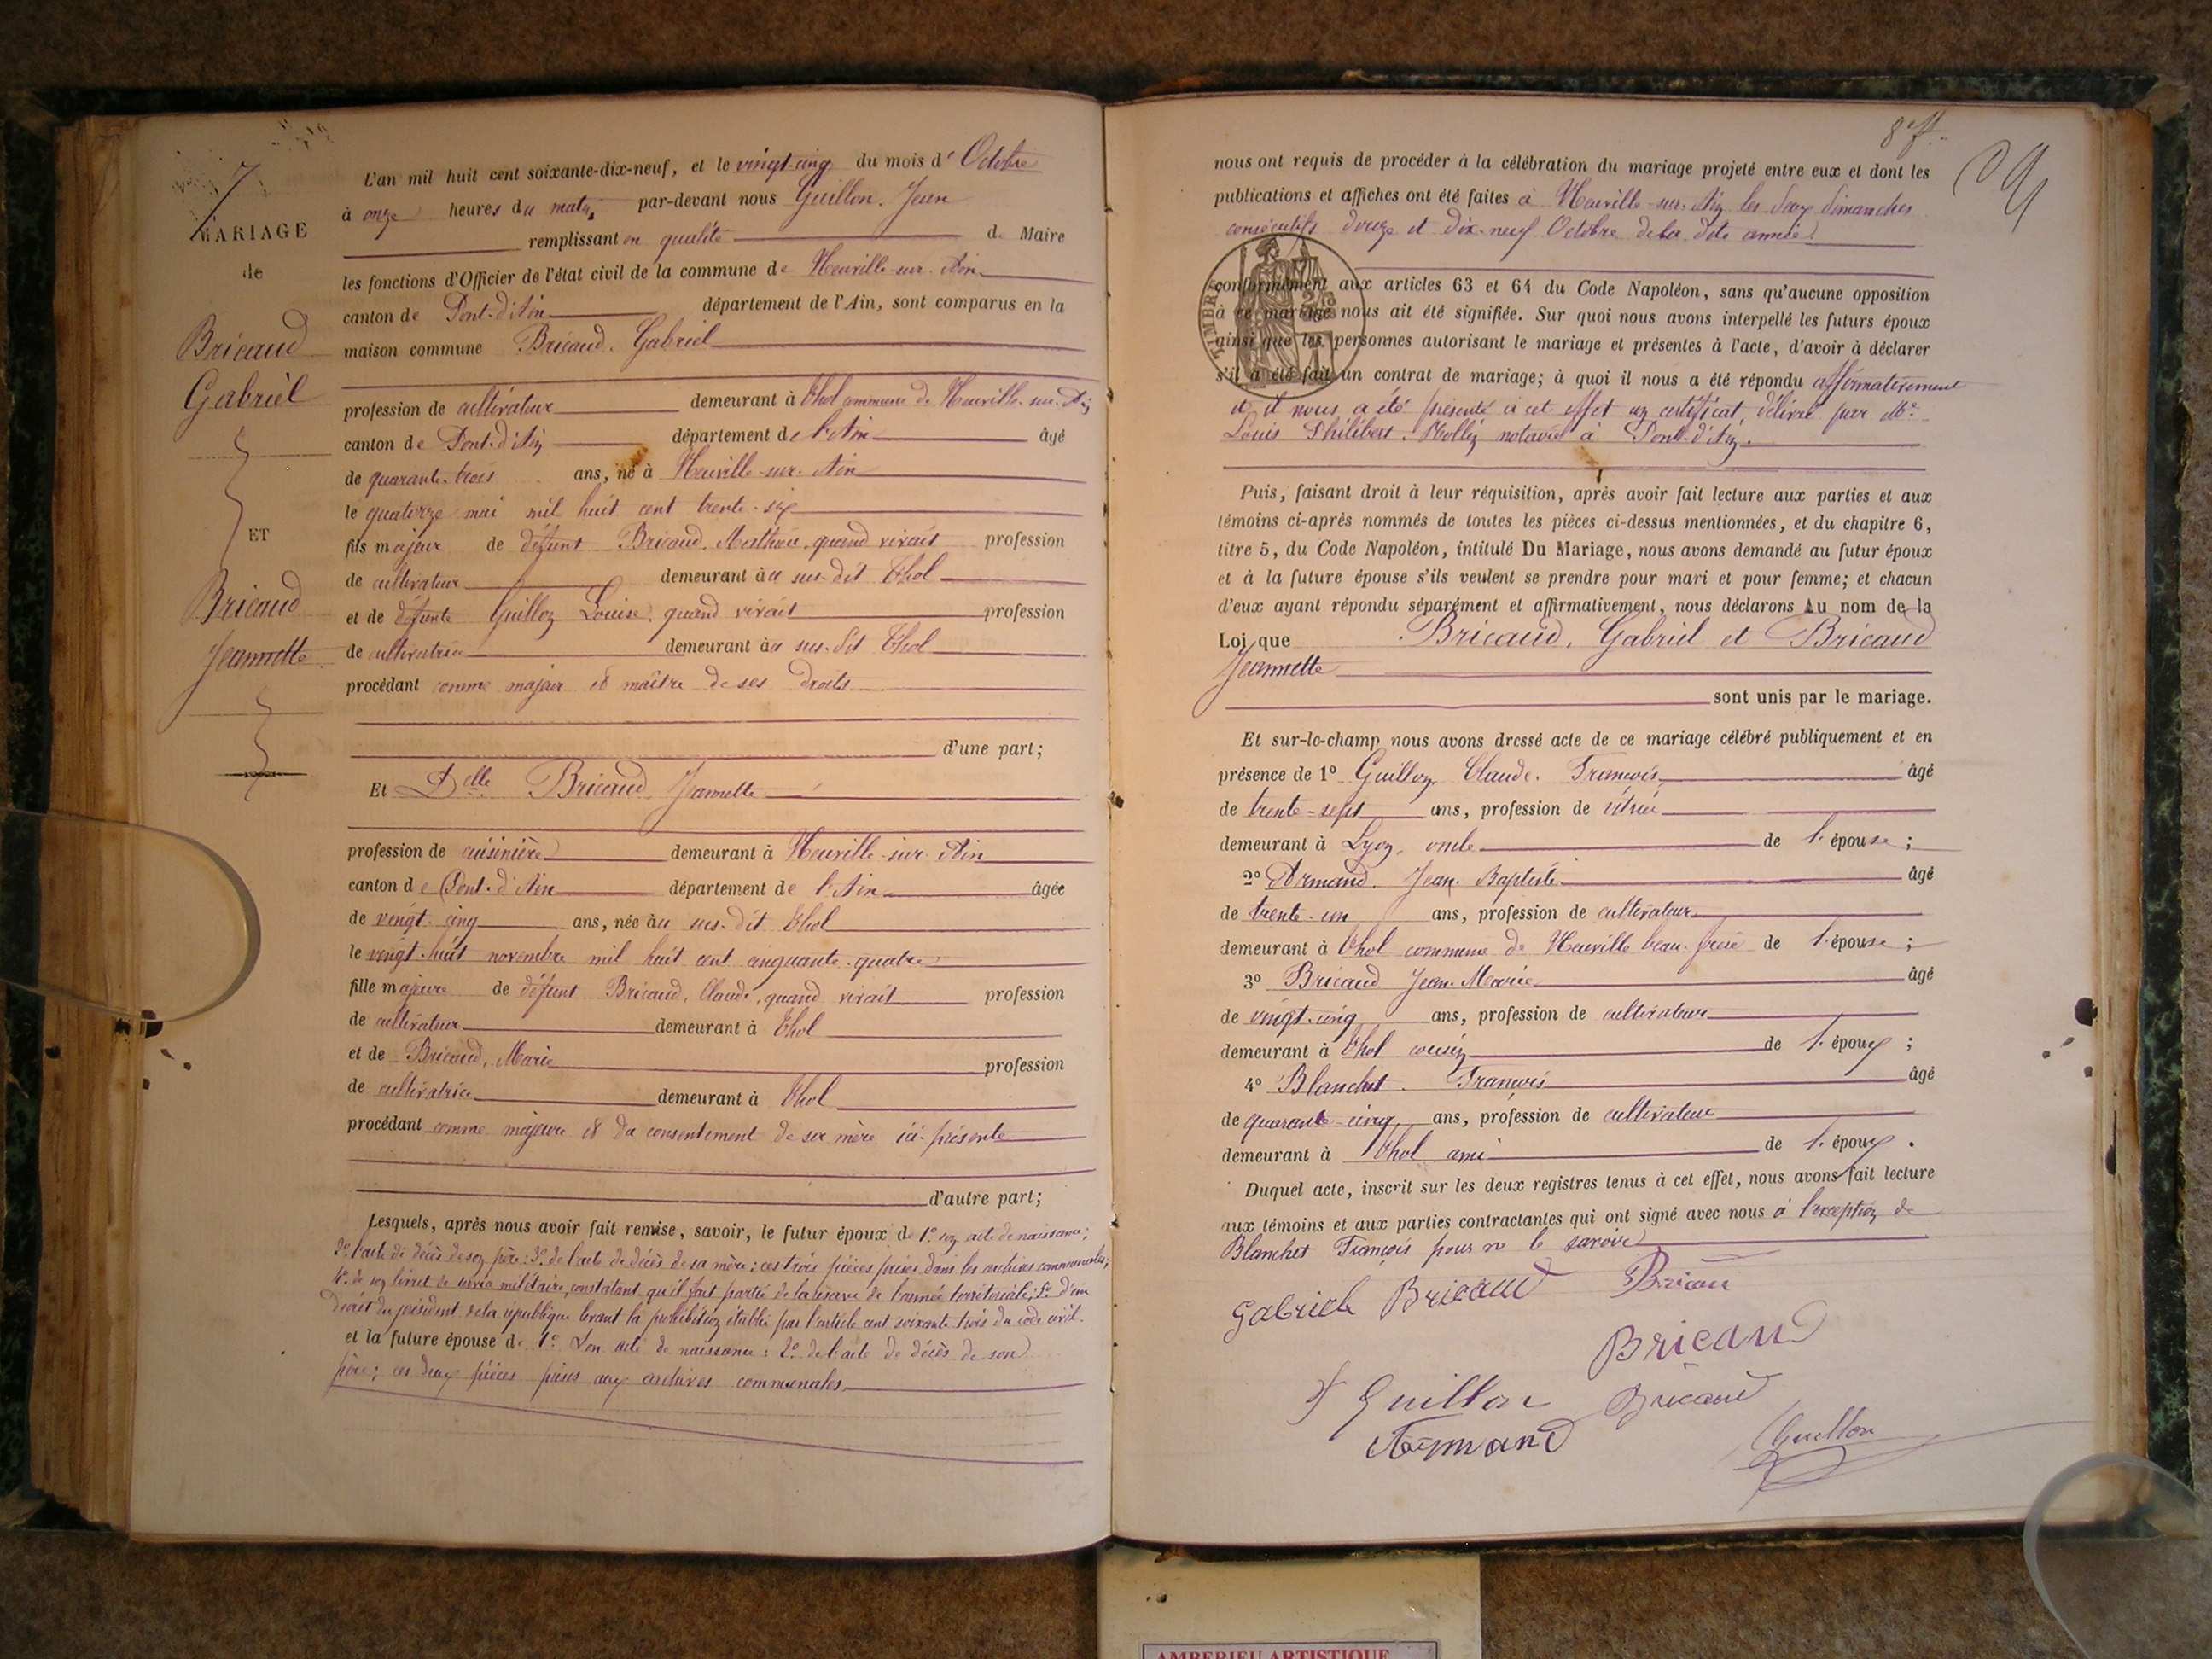 7
MARIAGE
de
Bricaud
Gabriel
ET
Bricaud
Jeannette
L'an mil huit cent soixante-dix-neuf, et le vingt-cinq du mois d'Octobre
à onze heures du matin par-devant nous Guillon. Jean
remplissant en qualité de Maire
les fonctions d'Officier de l'état civil de la commune de Neuville-sur-Ain
canton de Pont-d'Ain département de l'Ain, sont comparus en la
maison commune Bricaud. Gabriel
profession de cultivateur demeurant à Thol commune de Neuville-sur-Ain
canton de Pont-d'Ain département de l'Ain âgé
de quarante-trois ans, né à Neuville-sur-Ain
le quatorze mai mil huit cent trente-six
fils majeur de défunt Bricaud, quand vivait profession
de cultivateur demeurant au sus-dit Thol
et de défunte Guilloz Louise, quand vivait profession
de cultivatrice demeurant au sus-dit Thol
procédant comme majeur et maître de ses droits
d'une part;
Et Delle Bricaud Jeannette
profession de cuisinière demeurant à Neuville-sur-Ain
canton de Pont-d'Ain département de l'Ain âgée
de vingt-cinq ans, née au sus-dit Thol
le vingt-huit novembre mil huit cent cinquante-quatre
fille majeure de défunt Bricaud, Claude, quand vivait profession
de cultivateur demeurant à Thol
et de Bricaud, Marie profession
de cultivatrice demeurant à Thol
procédant comme majeure et du consentement de sa mère ici-présente
d'autre part;
Lesquels, après nous avoir fait remise, savoir, le futur époux de 1º son acte de naissance;
2º l'acte de décès de son père: 3º de l'acte de décès de sa mère; ces trois pièces prises dans les archives communales;
4º de son livret de service militaire, constatant qu'il fait partie de la réserve de l'armée territoriale; 5º d'un
Décret du président de la république levant la prohibition établie par l'article cent soixante trois du code civil.
et la future épouse de 1º Son acte de naissance: 2º de l'acte de décès de son
père; ces deux pièces prises aux archives communales
nous ont requis de procéder à la célébration du mariage projeté entre eux et dont les
publications et affiches ont été faites à Neuville-sur-Ain les deux dimanches
consécutifs douze et dix-neuf Octobre de la dite année.
TIMBRE
conformément aux articles 63 et 64 du Code Napoléon, sans qu'aucune opposition
à ce mariage nous ait été signifiée. Sur quoi nous avons interpellé les futurs époux
ainsi que les personnes autorisant le mariage et présentes à l'acte, d'avoir à déclarer
s'il a été fait un contrat de mariage; à quoi il nous a été répondu affirmativement
et il nous a été présenté à cet effet un certificat délivré par Me
Louis Philibert notaire à Pont-d'Ain.
Puis, faisant droit à leur réquisition, après avoir fait lecture aux parties et aux
témoins ci-après nommés de toutes les pièces ci-dessus mentionnées, et du chapitre 6,
titre 5, du Code Napoléon, intitulé Du Mariage, nous avons demandé au futur époux
et à la future épouse s'ils veulent se prendre pour mari et pour femme; et chacun
d'eux ayant répondu séparément et affirmativement, nous déclarons Au nom de la
Loi que Bricaud, Gabriel et Bricaud
Jeannette
sont unis par le mariage.
Et sur-le-champ nous avons dressé acte de ce mariage célébré publiquement et en
présence de 1º Guilloz, Claude. François âgé
de trente-sept ans, profession de
demeurant à Lyon, oncle de l'épouse;
2º Armand. Jean. Baptiste âgé
de trente-un ans, profession de cultivateur
demeurant à Thol commune de Neuville beau-frère de l'épouse;
3º Bricaud Jean-Marie âgé
de vingt-cinq ans, profession de cultivateur
demeurant à Thol cousin de l'époux;
4º Blanchet. François âgé
de quarante-cinq ans, profession de cultivateur
demeurant à Thol ami de l'époux.
Duquel acte, inscrit sur les deux registres tenus à cet effet, nous avons fait lecture
aux témoins et aux parties contractantes qui ont signé avec nous à l'exception de
Blanchet François pour ne le savoir
Gabriel Bricaud
Bricaud
Guillon Bricaud
Armand Guillon
AMBERIEU ARTISTIQUE